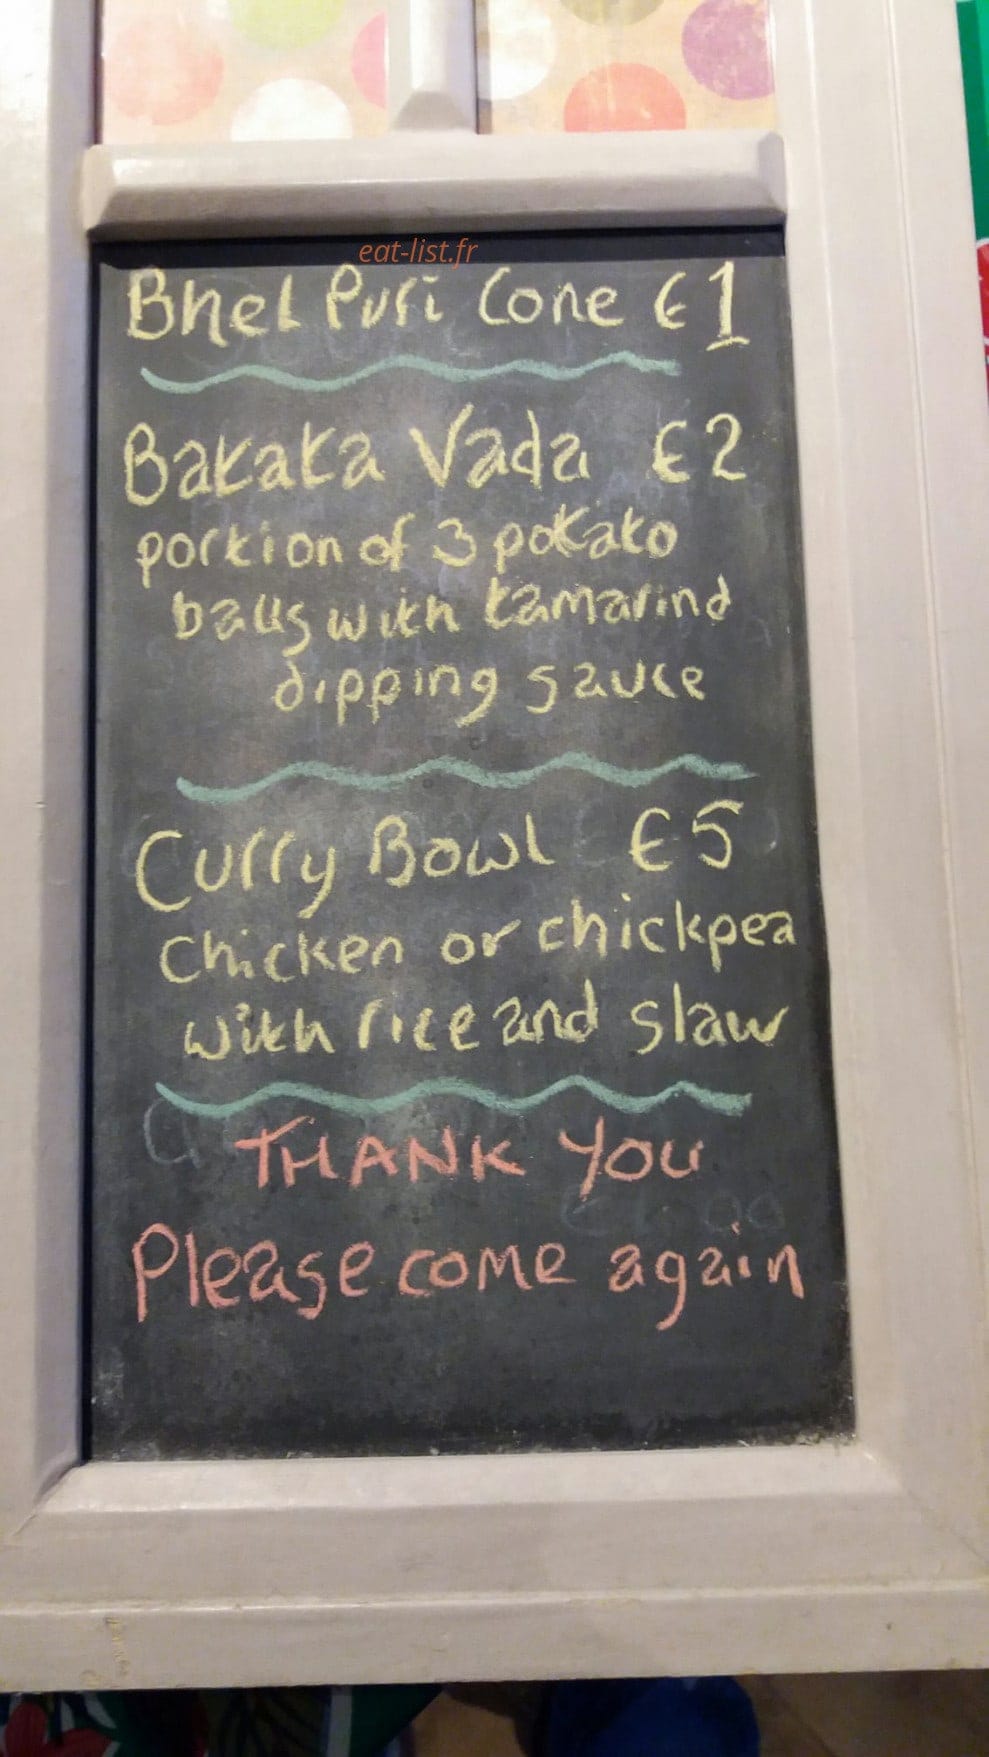 eat-list.fr
Bhel Puri Cone €1
Batata Vada €2
portion of 3 potato
balls with tamarind
dipping sauce
Curry Bowl €5
Chicken or chickpea
with rice and slaw
THANK YOU
Please come again